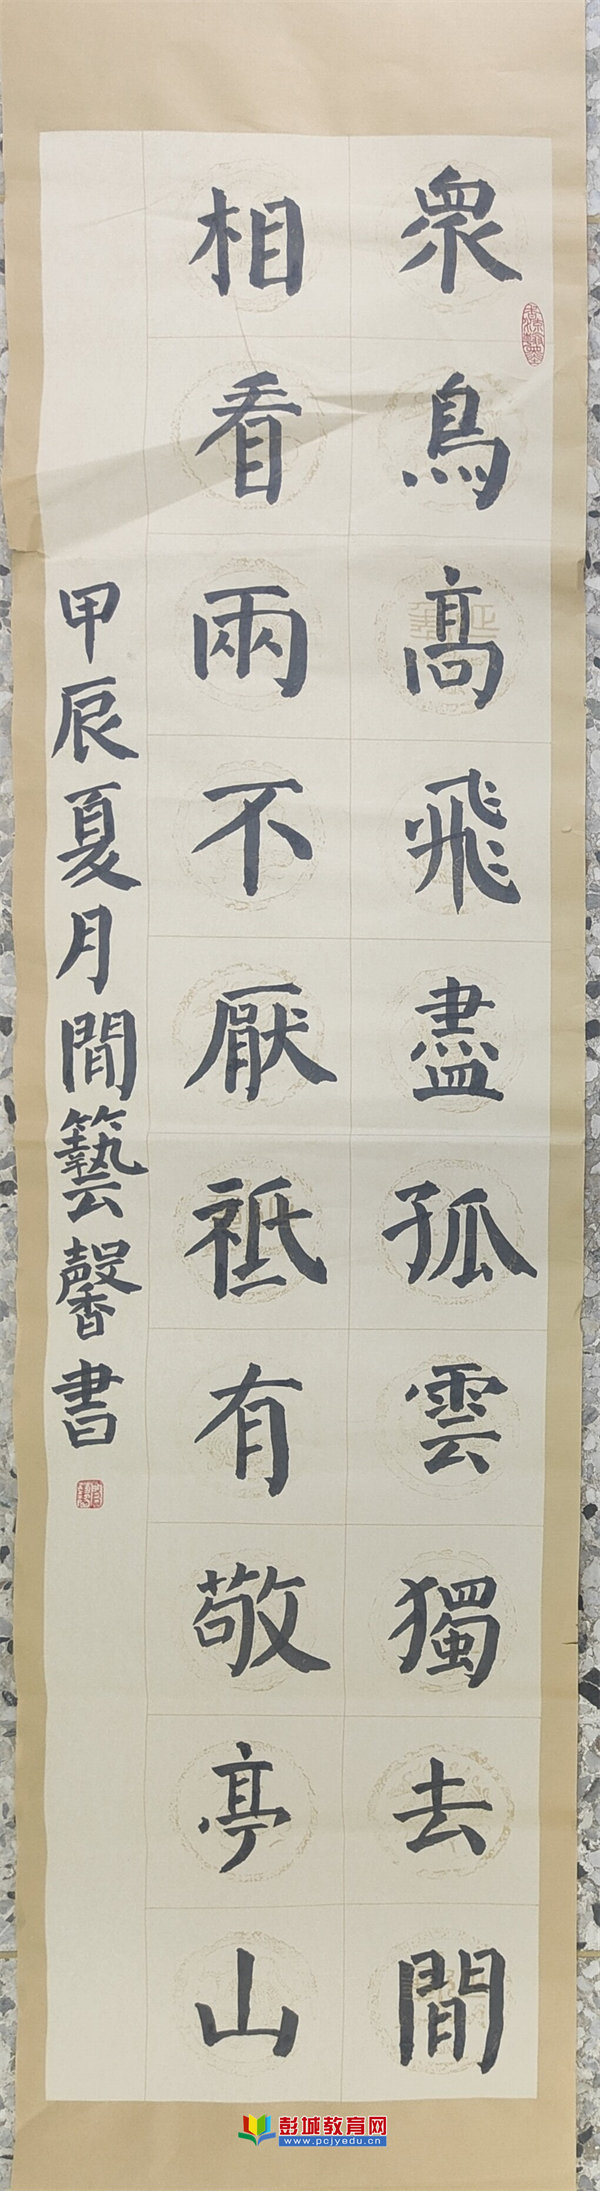 眾鳥髙飛盡孤雲獨去閒
相看兩不厭祗有敬亭山
甲辰夏月閒藝馨書
彭城教育网
www.pcjyedu.cn